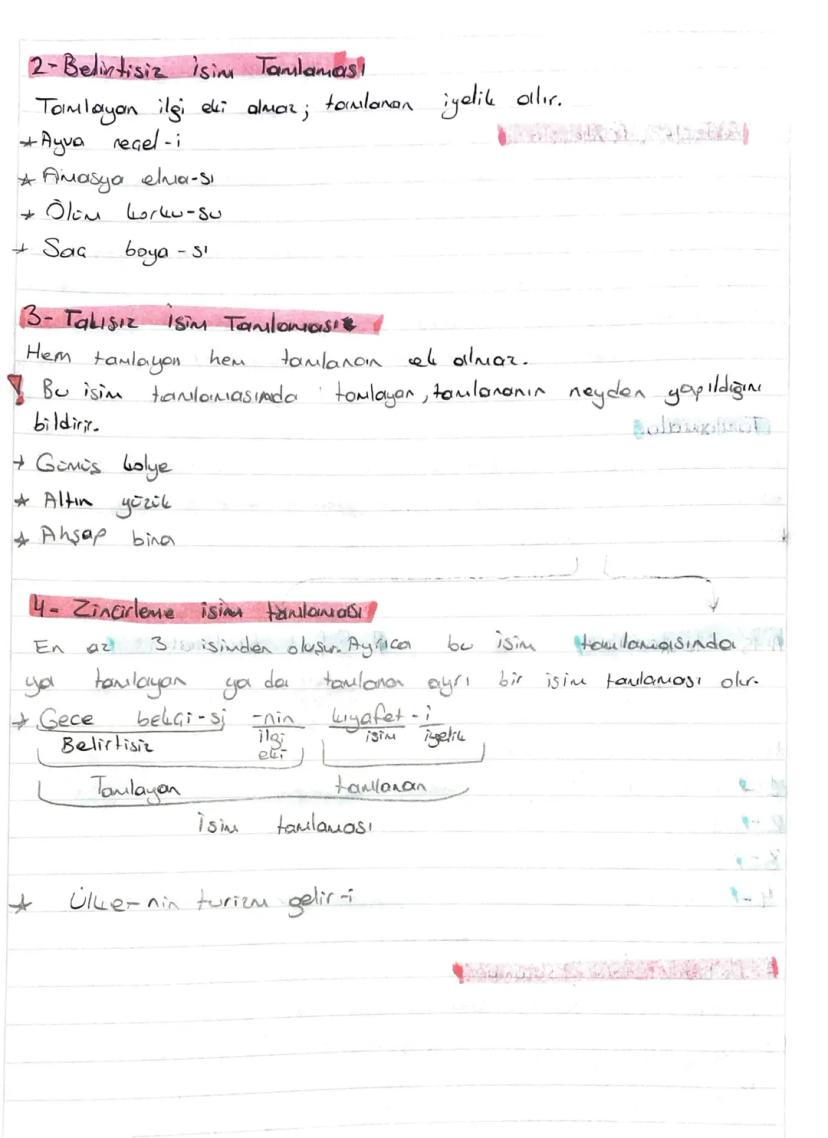 2- Belirtisiz isim Tamlaması
Tamlayan ilgi eki almaz; tamlanan iyelik alır.
* Ayva reçel-i
* Amasya elma-sı
* Ölüm korku-su
* Saç boya - sı
3- Takısız isim Tamlaması
Hem tamlayan hem tamlanan ek almaz.
! Bu isim tamlamasında tamlayan, tamlananın neyden yapıldığını
bildirir.
* Gümüş kolye
* Altın yüzük
* Ahşap bina
4- Zincirleme isim tamlaması
En az 3 isimden oluşur. Ayrıca bu isim tamlamasında
ya tamlayan ya da tamlanan ayrı bir isim tamlaması olur.
* Gece bekçi-si -nin kıyafet - i
Belirtisiz ilgi eki isim iyelik
Tamlayan tamlanan
isim tamlaması
* Ülke-nin turizm gelir-i